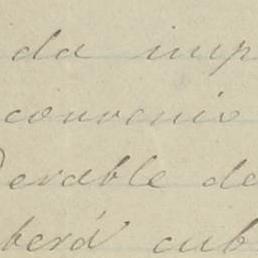 da imp
convenio
erable de
berá cub